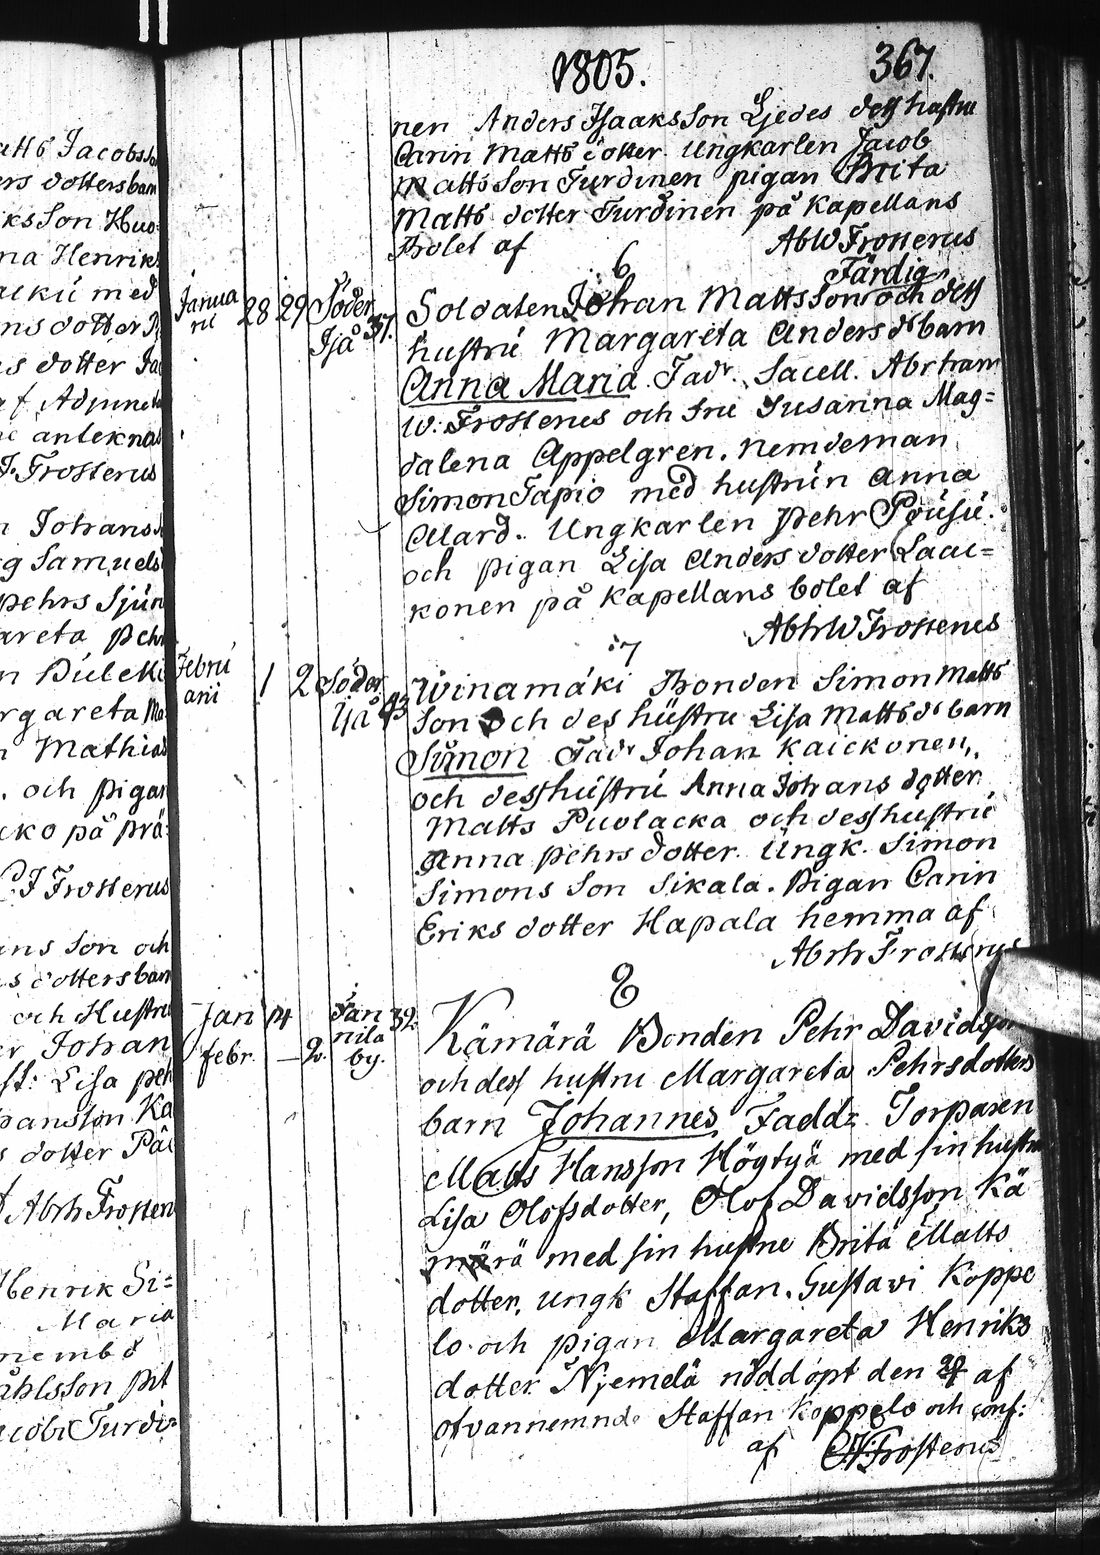 1805. 367.
nen Anders Isaaks Son Ljedes dess hustru
Carin Matts dotter. Ungkarlen Jacob
Matts Son Turdinen pigan Brita
Matts dotter Turdinen på Kapellans
Bolet af AbW Frosterus
6 Färdig
Janua
rii 28 29 Söder
Ijå 37. Soldaten Johan Mattsson och dess
hustru Margareta Anders ds barn
Anna Maria. Fadr. Sacell. Abraham
W. Frosterus och fru Susanna Mag=
dalena Appelgren. Nemdeman
Simon Tapio med hustrun Anna
Mard. Ungkarlen Pehr
och pigan Lisa Anders dotter Laai=
konen på Kapellans bolet af
AbhW Frosterus
7
Febru
arii 1 2 Söder
Ijå 43 Winamäki Bonden Simon Matts
Son och des hustru Lisa Matts ds barn
Simon Fadr Johan Kaickonen,
och dess hustru Anna Johans dotter
Matts Puolacka och dess hustru
Anna Pehrs dotter. Ungk. Simon
Simons Son Sikala. Pigan Carin
Eriks dotter Hapala hemma af
Abrh Frosterus
8
Jan 14 Jan
nila
by. 39.
febr. – 2.
Kämärä Bonden Pehr Davidsson
och dess hustru Margareta Pehrsdotters
barn Johannes Faddr Torparen
Matts Hansson Högtyä med sin hustru
Lisa Olofsdotter, Olof Davidsson Kä
märä med sin hustru Brita Matts
dotter, ungk Staffan Gustavi Koppe
lo och pigan Margareta Henriks
dotter Njemelä nöddöpt den af
ofvannemnde Staffan Koppelo och conf:
af Frosterus
atts Jacobsson
ers dotters barn
iks Son
na Henriks
med
ns dotter
as dotter
af Adjuncten
anteknas
J. Frosterus
n Johans
g Samuels
Pehrs Sjun
areta Pehr
n
rgareta Ma
n Mathias
. och pigan
cko på prä:
C.J Frosterus
ans Son och
s dotters barn
och Hustru
er Johan
st: Lisa Peh
pansson Ka
s dotter
Abrh Frosteru
Henrik Si=
Maria
nembd
åhlsson
acobi Turdi=